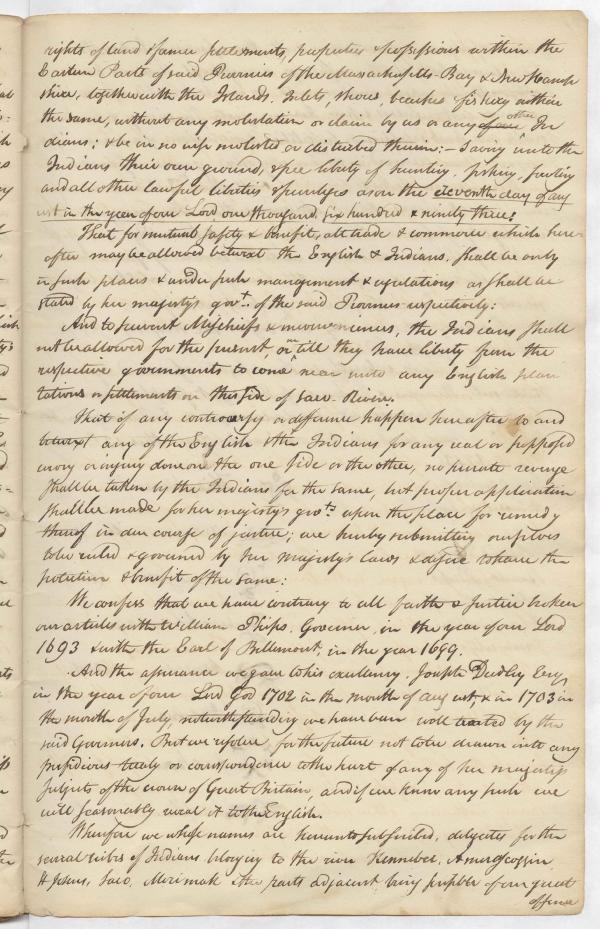 rights of land & former settlements, properties & possessions within the
Eastern Parts of said Provinces of the Massachusetts-Bay & New Hamp
shire, together with the Islands, Inlets, shores, beaches fishery within
the same, without any molestation or claim by us or any other In
dians; & be in no wise molested or disturbed therein:- Saving unto the
Indians their own ground, & free liberty of hunting, fishing, fowling
and all other lawful liberties & privileges as on the eleventh day of aug
ust in the year of our Lord one thousand, six hundred & ninety three;
That for mutual safety & benefit, all trade & commerce which here-
after may be allowed betwixt the English & Indians, shall be only
in such places & under such management & regulations as shall be
stated by her majestys govt. of the said Provinces respectively:
And to prevent Mischiefs & inconveniences, the Indians shall
not be allowed for the present, or till they have liberty from the
respective governments to come near unto any English plan
tations or settlements on this side of Saco River.
That if any controversy or difference happen hereafter to and
betwixt any of the English & the Indians for any real or supposed
wrong or injury done on the one side or the other, no private revenge
shall be taken by the Indians for the same, but proper application
shall be made for her majesty's govts upon the place for remedy
thereof in due course of justice; we hereby submitting ourselves
to be ruled & governed by her majesty's laws & desire to have the
protection & benefit of the same:
We confess that we have contrary to all faith & Justice broken
our articles with William Phips, Governer, in the year of our Lord
1693 & with the Earl of Bellemont, in the year 1699.
And the assurance we gave to his excellency, Joseph Dudley Esq,
in the year of our Lord God 1702 in the month of august, & in 1703 in
the month of July, notwithstanding we have been well treated by the
said Governors. But we resolve, for the future not to be drawn into any
perfidious treaty or correspondence to the hurt of any of her majestys
subjects of the crown of Great Britain, and if we know any such we
will seasonably reveal it to the English.
Wherefore we whose names are hereunto subscribed, delegates for the
several tribes of Indians belonging to the river Kennibec, Amerascoggin
St Jesus, Saco, Merimak & the parts adjacent being sensible of our great
offence